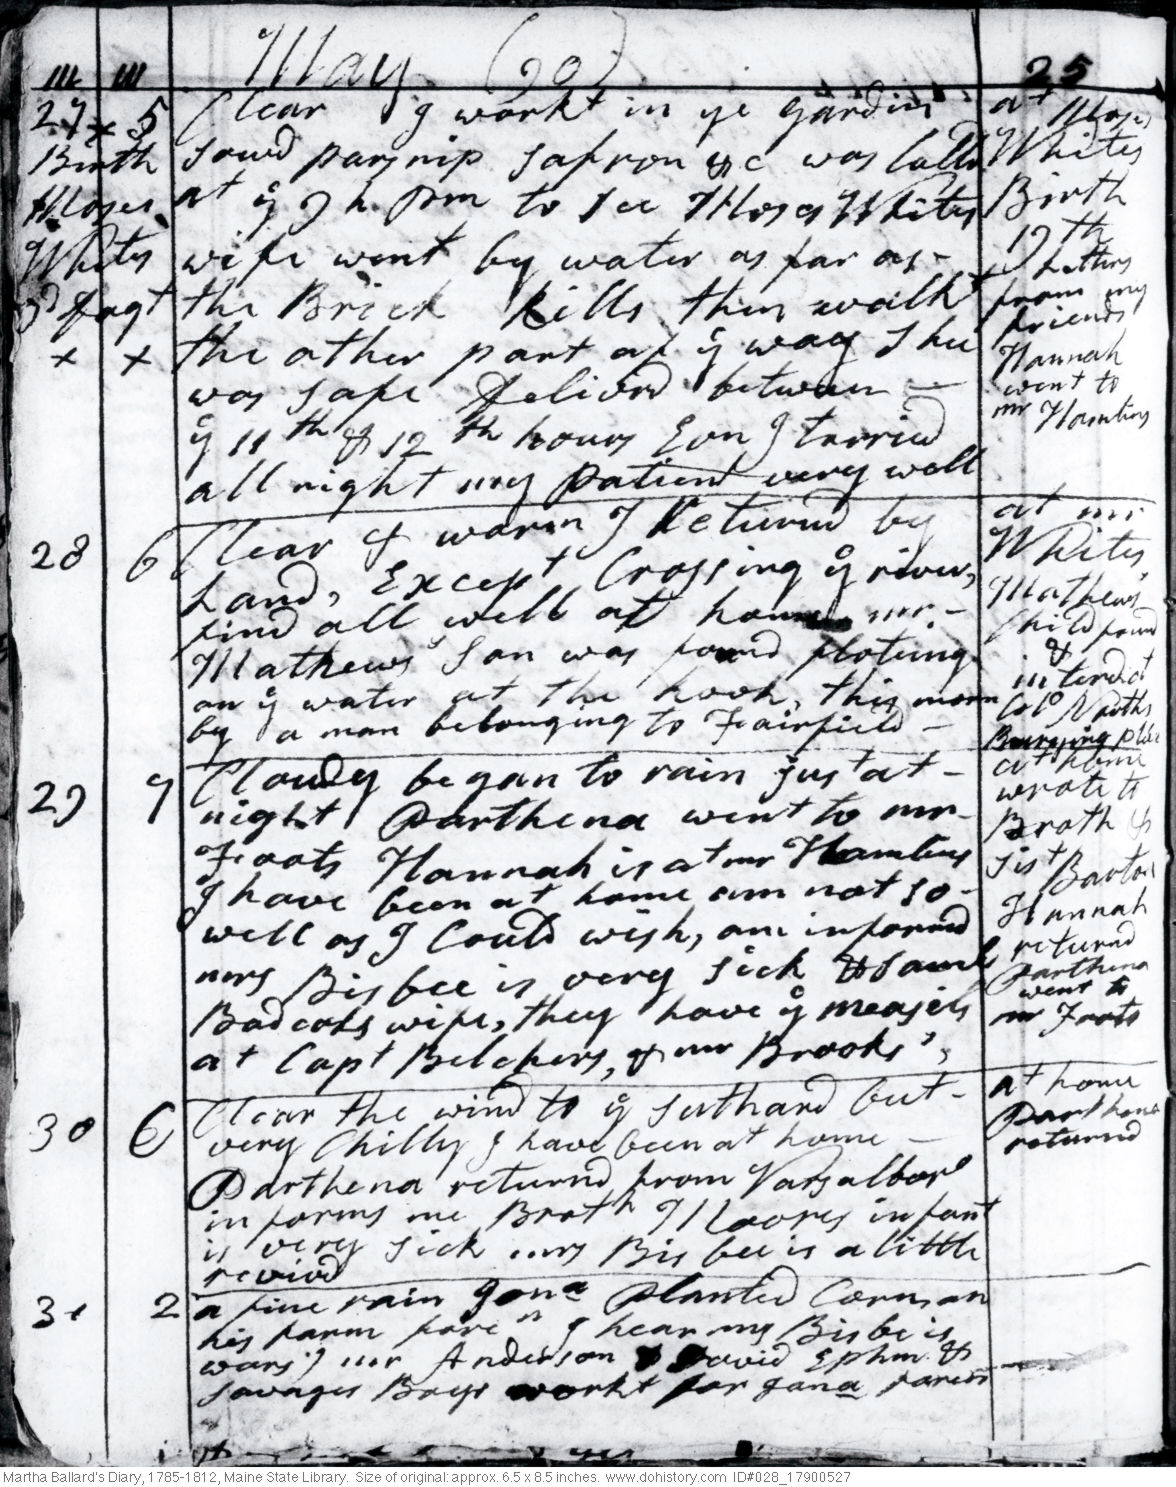 m m May (90) 25
27 x 5 Clear I workt in ye gardin
Birth Sowd parsnip Safron &c was Calld
Moses at ye 7 h pm to See Moses Whites
Whites wife went by water as far as -
3d dagt the Brick kills then walkt
x x the other part of ye way She
was safe delivrd between -
ye 11th & 12th hours Evn I tarried
all night my patient very well
at Moses
Whites
Birth
17th
Letters
from my
friends
Hannah
went to
mr Hamlins
28 6 Clear & warm I Returnd by
Land, Except Crossing ye river,
find all well at home mr. -
Mathews' Son was found floteing
on ye water at the hook, this morn
by a man belonging to Fairfield -
at mr
Whites,
Mathews'
Child found
&
interd at
Colo Norths
Burying place
29 7 Cloudy began to rain just at -
night Parthena went to mr -
Foots Hannah is at mr Hamlins
I have been at home am not so -
well as I Could wish, am informd
mrs Bisbee is very sick & Saml
Badcoks wife, they have ye measels
at Capt Belchers, & mr Brooks',
at home
wrote to
Broth &
Sist Barton
Hannah
returnd
Parthena
went to
mr Foots
30 6 Clear the wind to ye suthard but -
very Chilly I have been at home -
Parthena returnd from Vassalboro
informs me Broth Moores infant
is very sick mrs Bisbee is a little
revivd
at home
Parthena
returnd
31 2 a fine rain Jona planted Corn on
his farm I hear mrs Bisbe is
wors mr Anderson David Ephm &
Savages Boys workt for Jona
Martha Ballard's Diary, 1785-1812, Maine State Library. Size of original: approx. 6.5 x 8.5 inches. www.dohistory.com ID#028_17900527